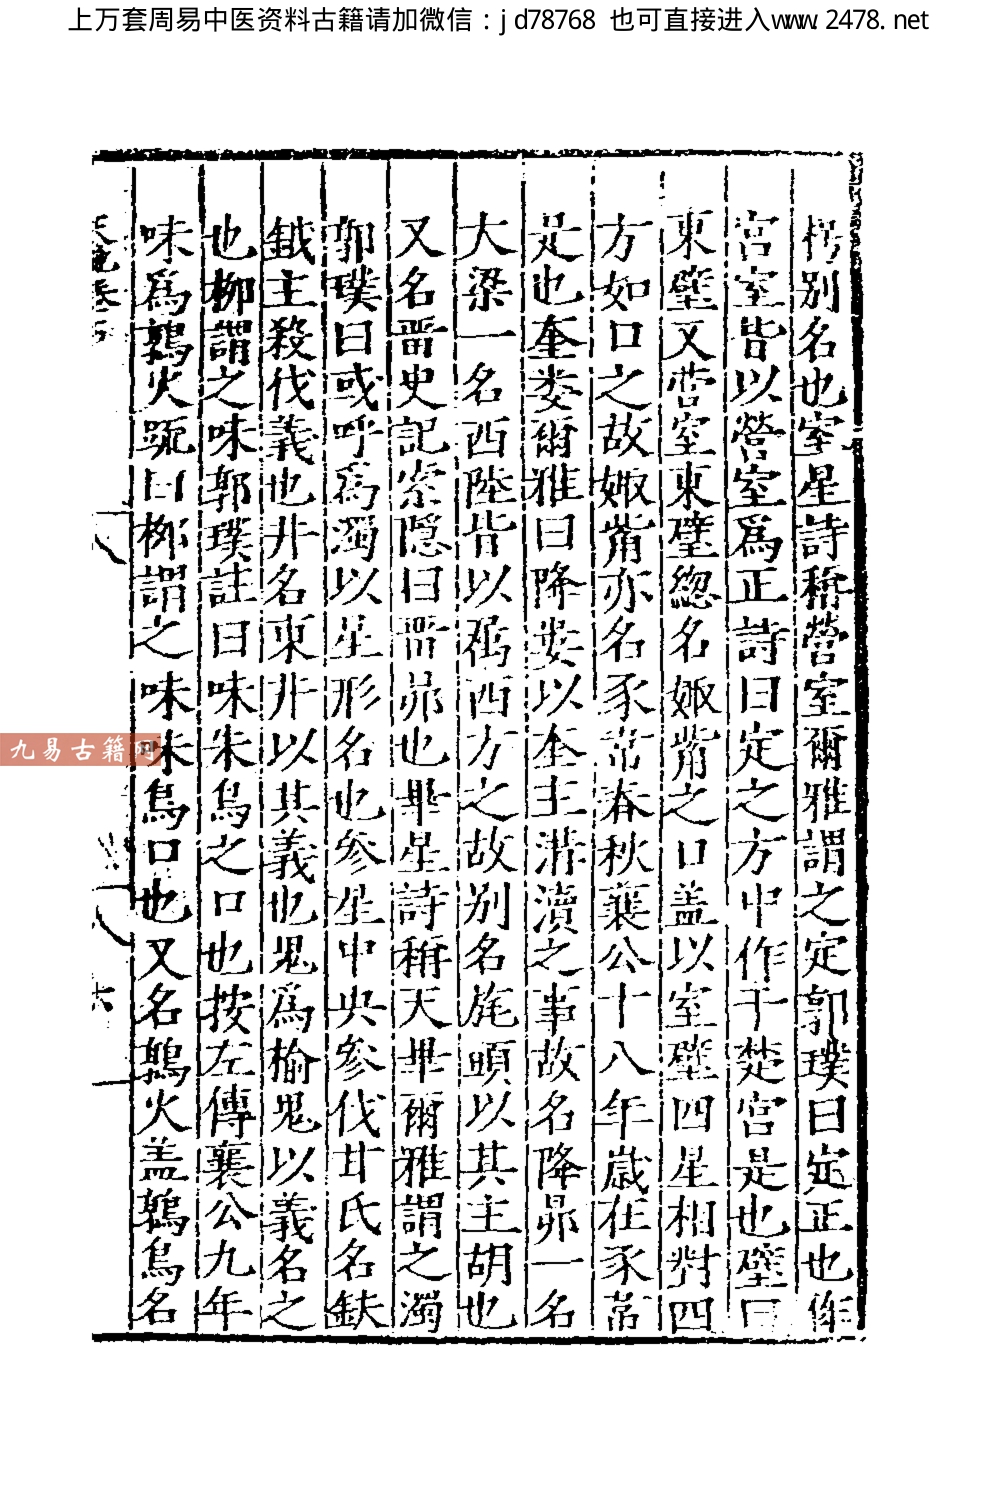 上万套周易中医资料古籍请加微信：jd78768 也可直接进入www.2478.net
枵别名也室星詩稱營室爾雅謂之定郭璞曰定正也作
宫室皆以營室爲正詩曰定之方中作于楚宫是也壁曰
東壁又营室東壁總名娵觜之口盖以室壁四星相對四
方如口之故娵觜亦名豕韋春秋襄公十八年歲在豕韋
是也奎娄爾雅曰降娄以奎主溝瀆之事故名降昴一名
大梁一名西陸皆以爲西方之故别名旄頭以其主胡也
又名罶史記索隱曰罶昴也畢星詩稱天畢爾雅謂之濁
郭璞曰或呼爲濁以星形名也参星中央参伐甘氏名鈇
鉞主殺伐義也井名東井以其義也鬼爲輸鬼以義名之
也柳謂之味郭璞註曰味朱鳥之口也按左傳襄公九年
味爲鶉火疏曰柳謂之味味朱鳥口也又名鶉火盖鶉鳥名
六
九易古籍网